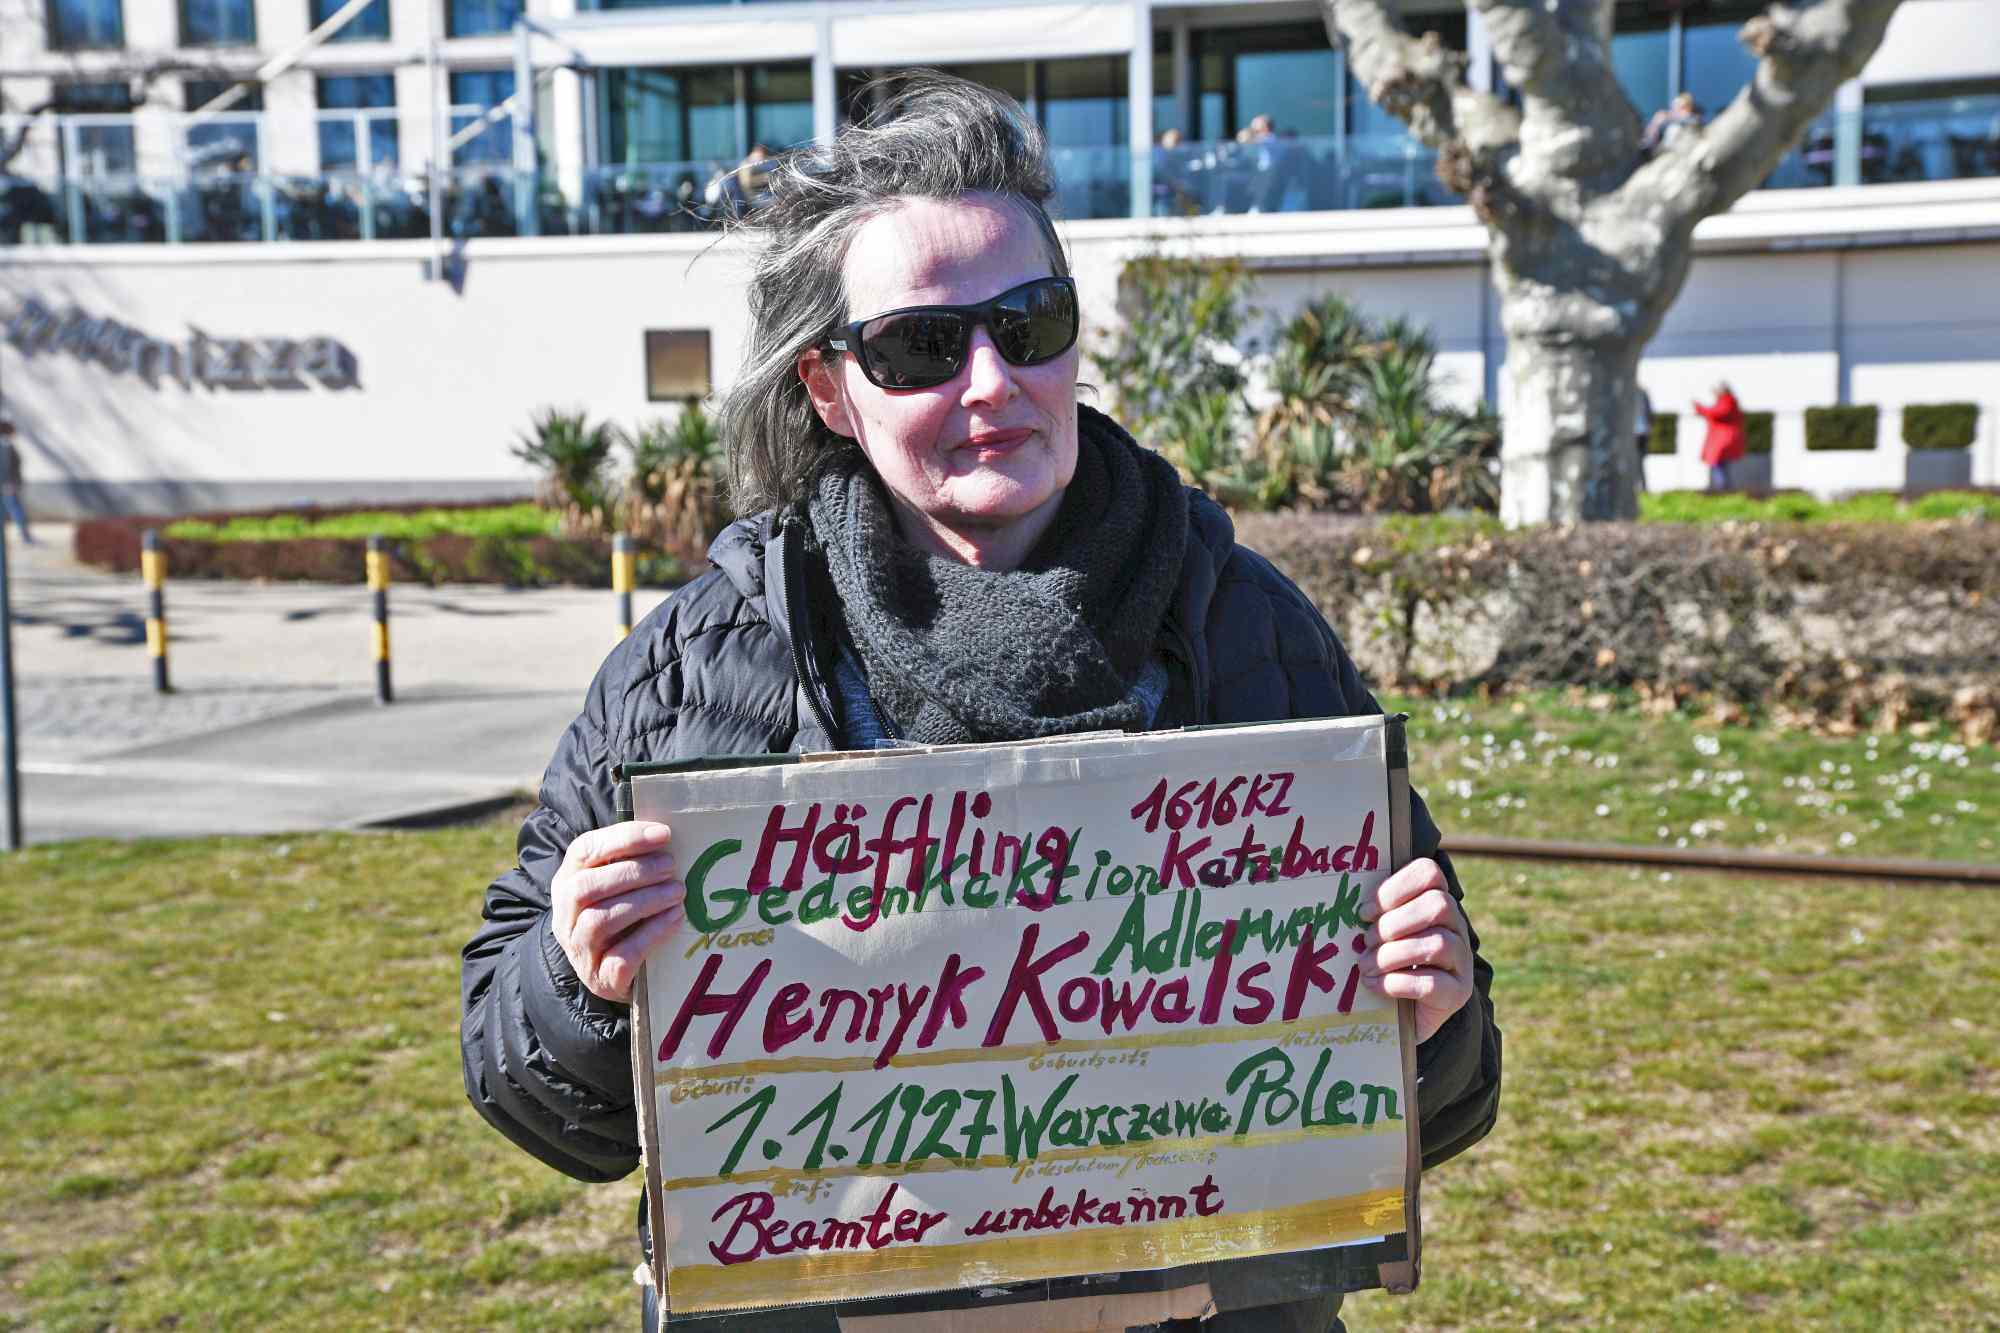 nizza
Häftling 1616 KZ
Gedenkaktion Katzbach
Name: Adlerwerke
Henryk Kowalski
Geburt: Geburtsort: Nationalität:
1.1.1927 Warszawa Polen
Todesdatum/Todesort:
Beamter unbekannt